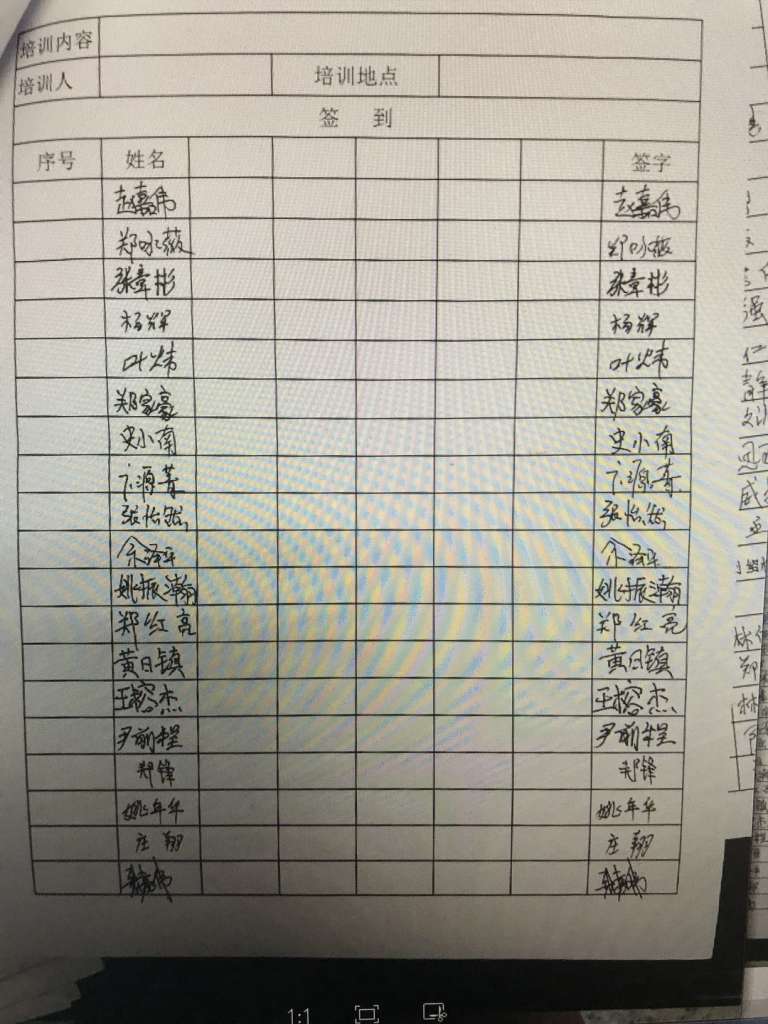 培训内容
培训人 培训地点
签 到
序号 姓名 签字
赵嘉伟 赵嘉伟
郑咏薇 郑咏薇
张章彬 张章彬
杨辉 杨辉
叶炜 叶炜
郑家豪 郑家豪
史小南 史小南
源菁 源菁
张怡然 张怡然
余泽华 余泽华
姚振瀚 姚振瀚
郑红亮 郑红亮
黄日镇 黄日镇
王榕杰 王榕杰
尹前程 尹前程
郑锋 郑锋
姚年华 姚年华
庄翔 庄翔
1:1